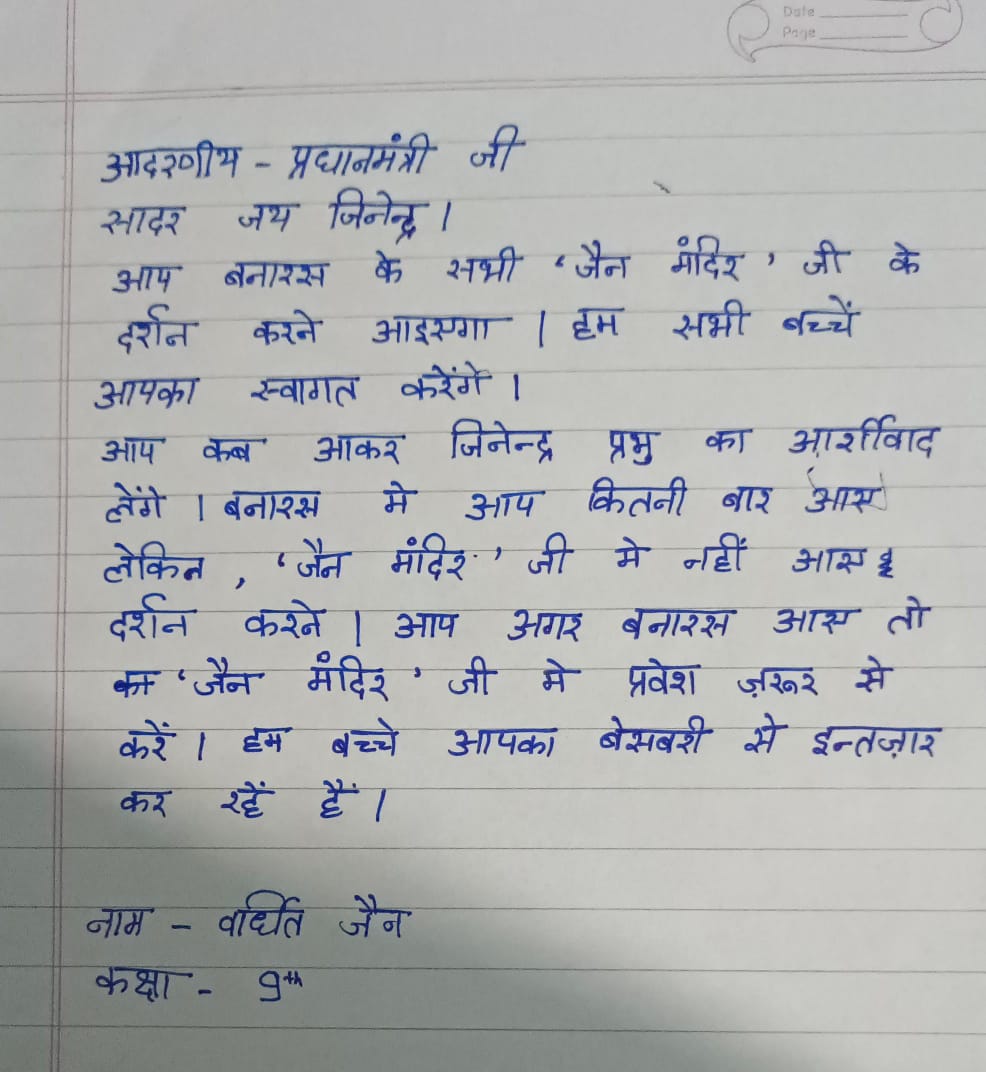 Date
Page
आदरणीय - प्रधानमंत्री जी
सादर जय जिनेन्द्र।
आप बनारस के सभी 'जैन मंदिर' जी के
दर्शन करने आइएगा। हम सभी बच्चें
आपका स्वागत करेंगे।
आप कब आकर जिनेन्द्र प्रभु का आर्शीवाद
लेंगे। बनारस मे आप कितनी बार आए
लेकिन, 'जैन मंदिर' जी मे नहीं आए
दर्शन करने। आप अगर बनारस आए तो
'जैन मंदिर' जी मे प्रवेश ज़रूर से
करें। हम बच्चे आपका बेसबरी से इन्तज़ार
कर रहें हैं।
नाम - वर्धिति जैन
कक्षा - 9th